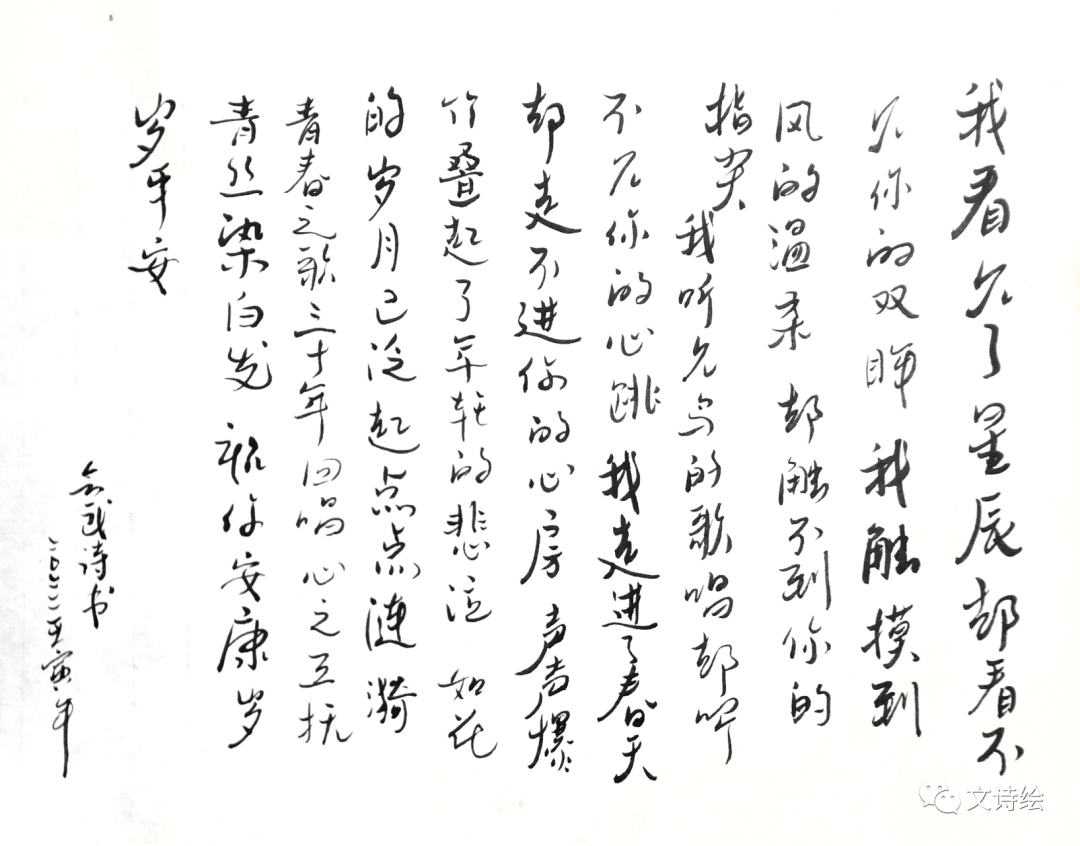 我看见了星辰却看不
见你的双眸 我触摸到
风的温柔 却触不到你的
指尖
我听见鸟的歌唱却听
不见你的心跳 我走进了春天
却走不进你的心房 声声爆
竹叠起了年轻的悲泣 如花
的岁月已泛起点点涟漪
青春之歌三十年回唱 心之互抚
青丝染白发 祝你安康岁
岁平安
诗书
二〇二二壬寅年
文诗绘